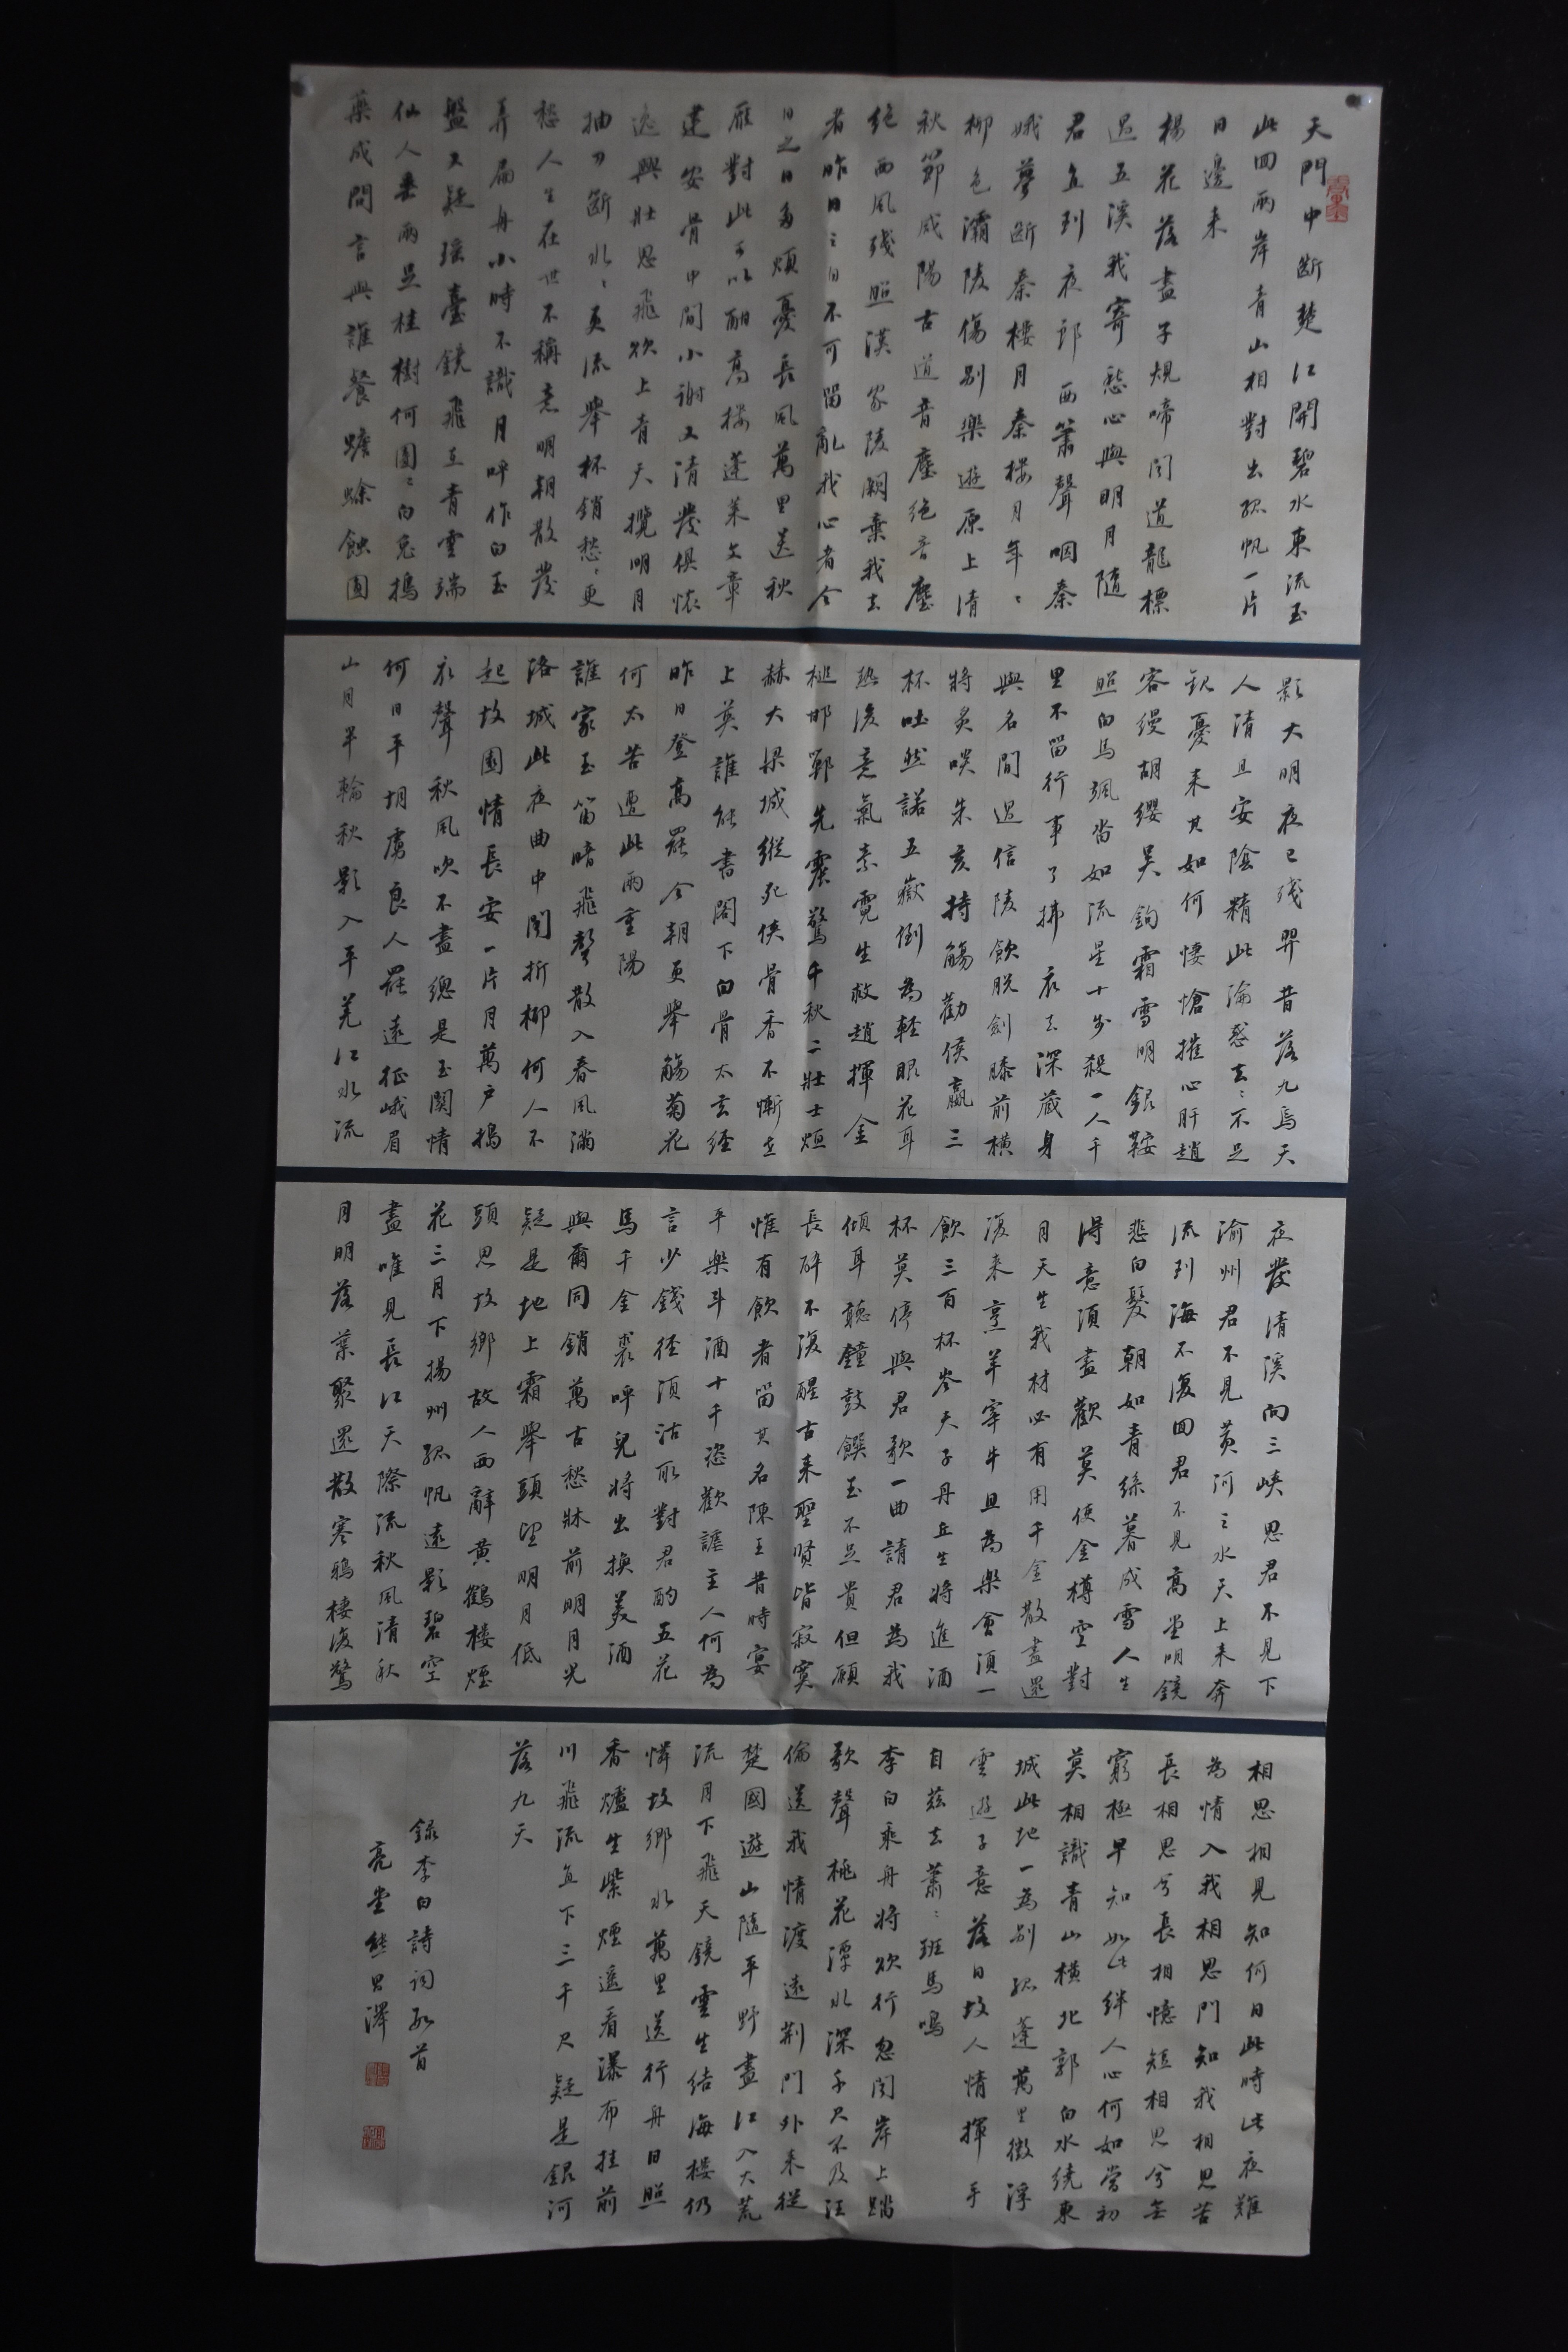 天門中斷楚江開碧水東流至
此回兩岸青山相對出孤帆一片
日邊来
楊花落盡子規啼聞道龍標
過五溪我寄愁心與明月隨
君直到夜郎西簫聲咽秦
娥夢斷秦樓月秦樓月年〻
柳色灞陵傷別樂遊原上清
秋節咸陽古道音塵絕音塵
絕西風殘照漢家陵闕棄我去
者昨日之日不可留亂我心者今
日之日多煩憂長風萬里送秋
雁對此可以酣高樓蓬萊文章
建安骨中間小謝又清發俱懷
逸興壯思飛欲上青天攬明月
抽刀斷水〻更流舉杯銷愁〻更
愁人生在世不稱意明朝散發
弄扁舟小時不識月呼作白玉
盤又疑瑤臺鏡飛在青雲端
仙人垂兩足桂樹何團〻白兔搗
藥成問言與誰餐蟾蜍蝕圓
影大明夜已殘羿昔落九烏天
人清且安陰精此淪惑去〻不足
觀憂来其如何悽愴摧心肝趙
客縵胡纓吳鉤霜雪明銀鞍
照白馬颯沓如流星十步殺一人千
里不留行事了拂衣去深藏身
與名閒過信陵飲脫劍膝前橫
將炙啖朱亥持觴勸侯嬴三
杯吐然諾五嶽倒為輕眼花耳
熱後意氣素霓生救趙揮金
槌邯鄲先震驚千秋二壯士烜
赫大梁城縱死俠骨香不慚世
上英誰能書閣下白首太玄經
昨日登高罷今朝更舉觴菊花
何太苦遭此兩重陽
誰家玉笛暗飛聲散入春風滿
洛城此夜曲中聞折柳何人不
起故園情長安一片月萬戶搗
衣聲秋風吹不盡總是玉關情
何日平胡虜良人罷遠征峨眉
山月半輪秋影入平羌江水流
夜發清溪向三峽思君不見下
渝州君不見黃河之水天上来奔
流到海不復回君不見高堂明鏡
悲白髮朝如青絲暮成雪人生
得意須盡歡莫使金樽空對
月天生我材必有用千金散盡還
復来烹羊宰牛且為樂會須一
飲三百杯岑夫子丹丘生將進酒
杯莫停與君歌一曲請君為我
傾耳聽鐘鼓饌玉不足貴但願
長醉不復醒古来聖賢皆寂寞
惟有飲者留其名陳王昔時宴
平樂斗酒十千恣歡謔主人何為
言少錢徑須沽取對君酌五花
馬千金裘呼兒將出換美酒
與爾同銷萬古愁牀前明月光
疑是地上霜舉頭望明月低
頭思故鄉故人西辭黃鶴樓煙
花三月下揚州孤帆遠影碧空
盡唯見長江天際流秋風清秋
月明落葉聚還散寒鴉棲復驚
相思相見知何日此時此夜難
為情入我相思門知我相思苦
長相思兮長相憶短相思兮無
窮極早知如此絆人心何如當初
莫相識青山橫北郭白水繞東
城此地一為別孤蓬萬里徵浮
雲遊子意落日故人情揮手
自茲去蕭〻班馬鳴
李白乘舟將欲行忽聞岸上踏
歌聲桃花潭水深千尺不及汪
倫送我情渡遠荊門外来從
楚國遊山隨平野盡江入大荒
流月下飛天鏡雲生結海樓仍
憐故鄉水萬里送行舟日照
香爐生紫煙遙看瀑布挂前
川飛流直下三千尺疑是銀河
落九天
録李白詩詞數首
亮堂熊思澤